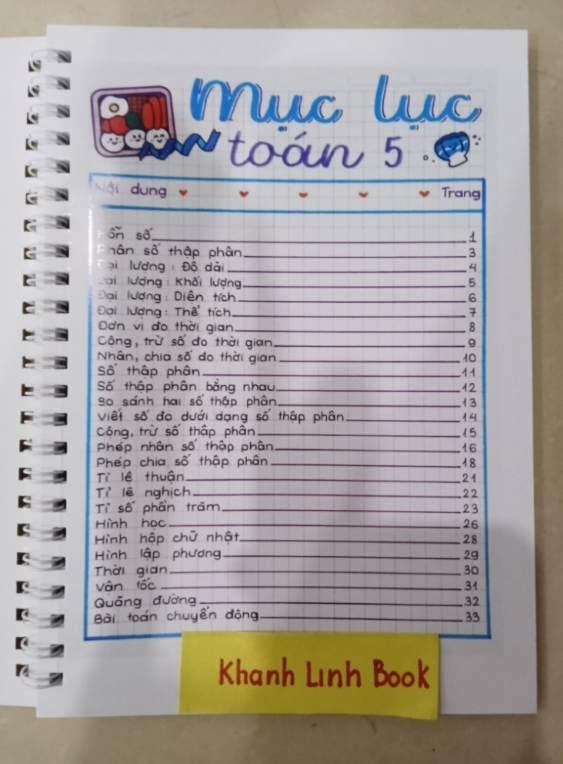 Mục lục
toán 5
Nội dung Trang
Hỗn số 1
Phân số thập phân 3
Đại lượng: Độ dài 4
Đại lượng: Khối lượng 5
Đại lượng: Diện tích 6
Đại lượng: Thể tích 7
Đơn vị đo thời gian 8
Cộng, trừ số đo thời gian 9
Nhân, chia số đo thời gian 10
Số thập phân 11
Số thập phân bằng nhau 12
So sánh hai số thập phân 13
Viết số đo dưới dạng số thập phân 14
Cộng, trừ số thập phân 15
Phép nhân số thập phân 16
Phép chia số thập phân 18
Tỉ lệ thuận 21
Tỉ lệ nghịch 22
Tỉ số phần trăm 23
Hình học 26
Hình hộp chữ nhật 28
Hình lập phương 29
Thời gian 30
Vận tốc 31
Quãng đường 32
Bài toán chuyển động 33
Khanh Linh Book